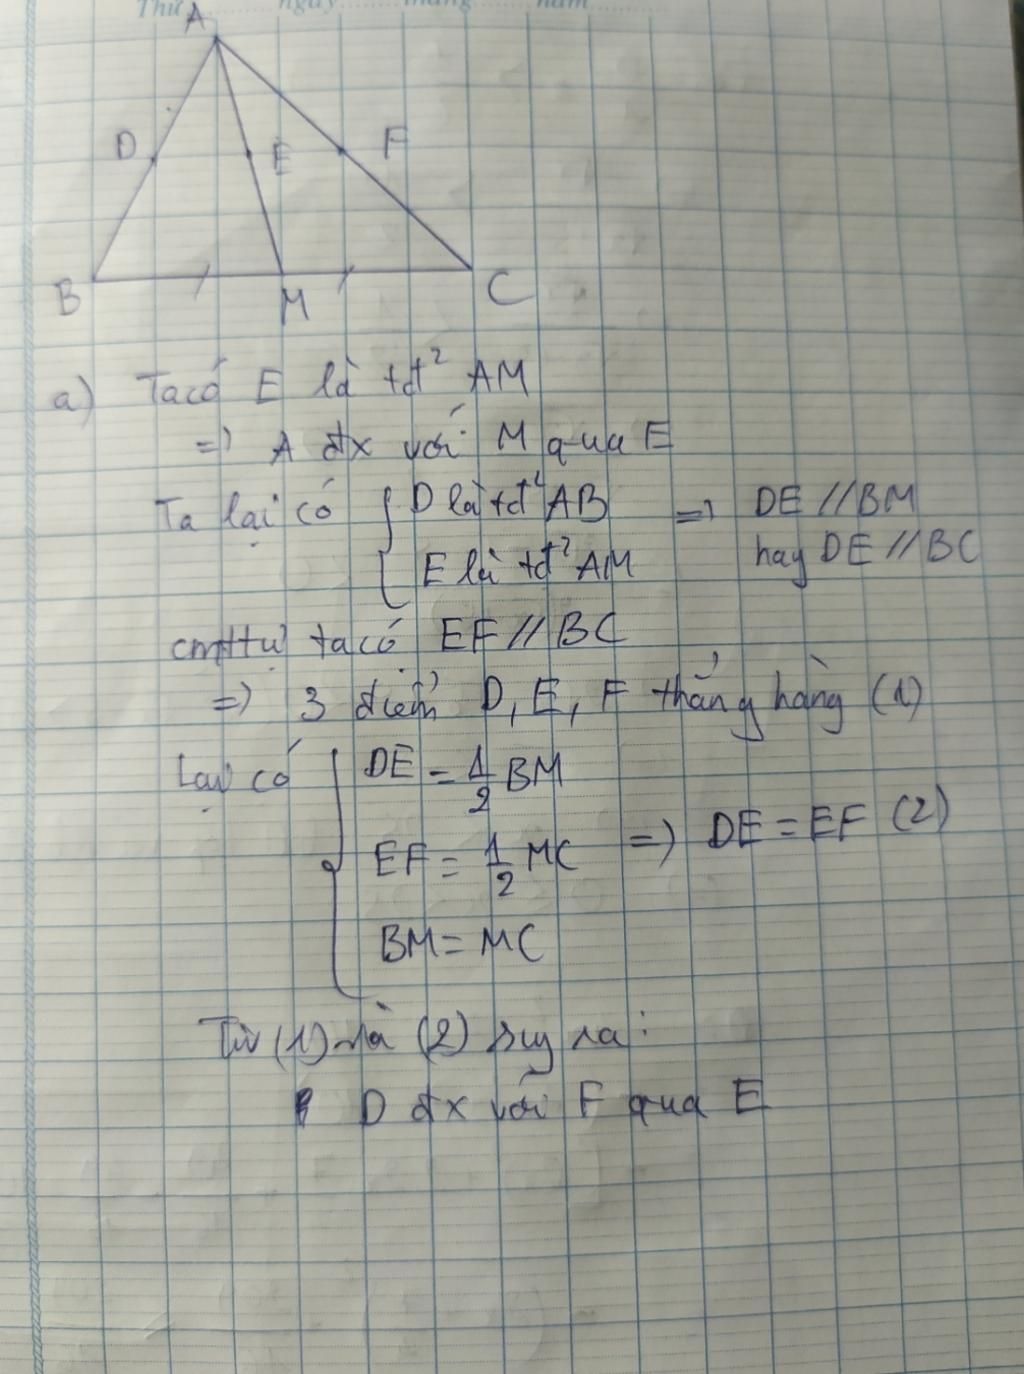 Thứ ngày tháng năm
A
D E F
B M C
a) Ta có E là tđ² AM
=> A đx với M qua E
Ta lại có { D là tđ² AB => DE // BM
E là tđ² AM hay DE // BC
cmttự ta có EF // BC
=> 3 điểm D, E, F thẳng hàng (1)
Lại có { DE = 1/2 BM
EF = 1/2 MC => DE = EF (2)
BM = MC
Từ (1) và (2) suy ra:
D đx với F qua E